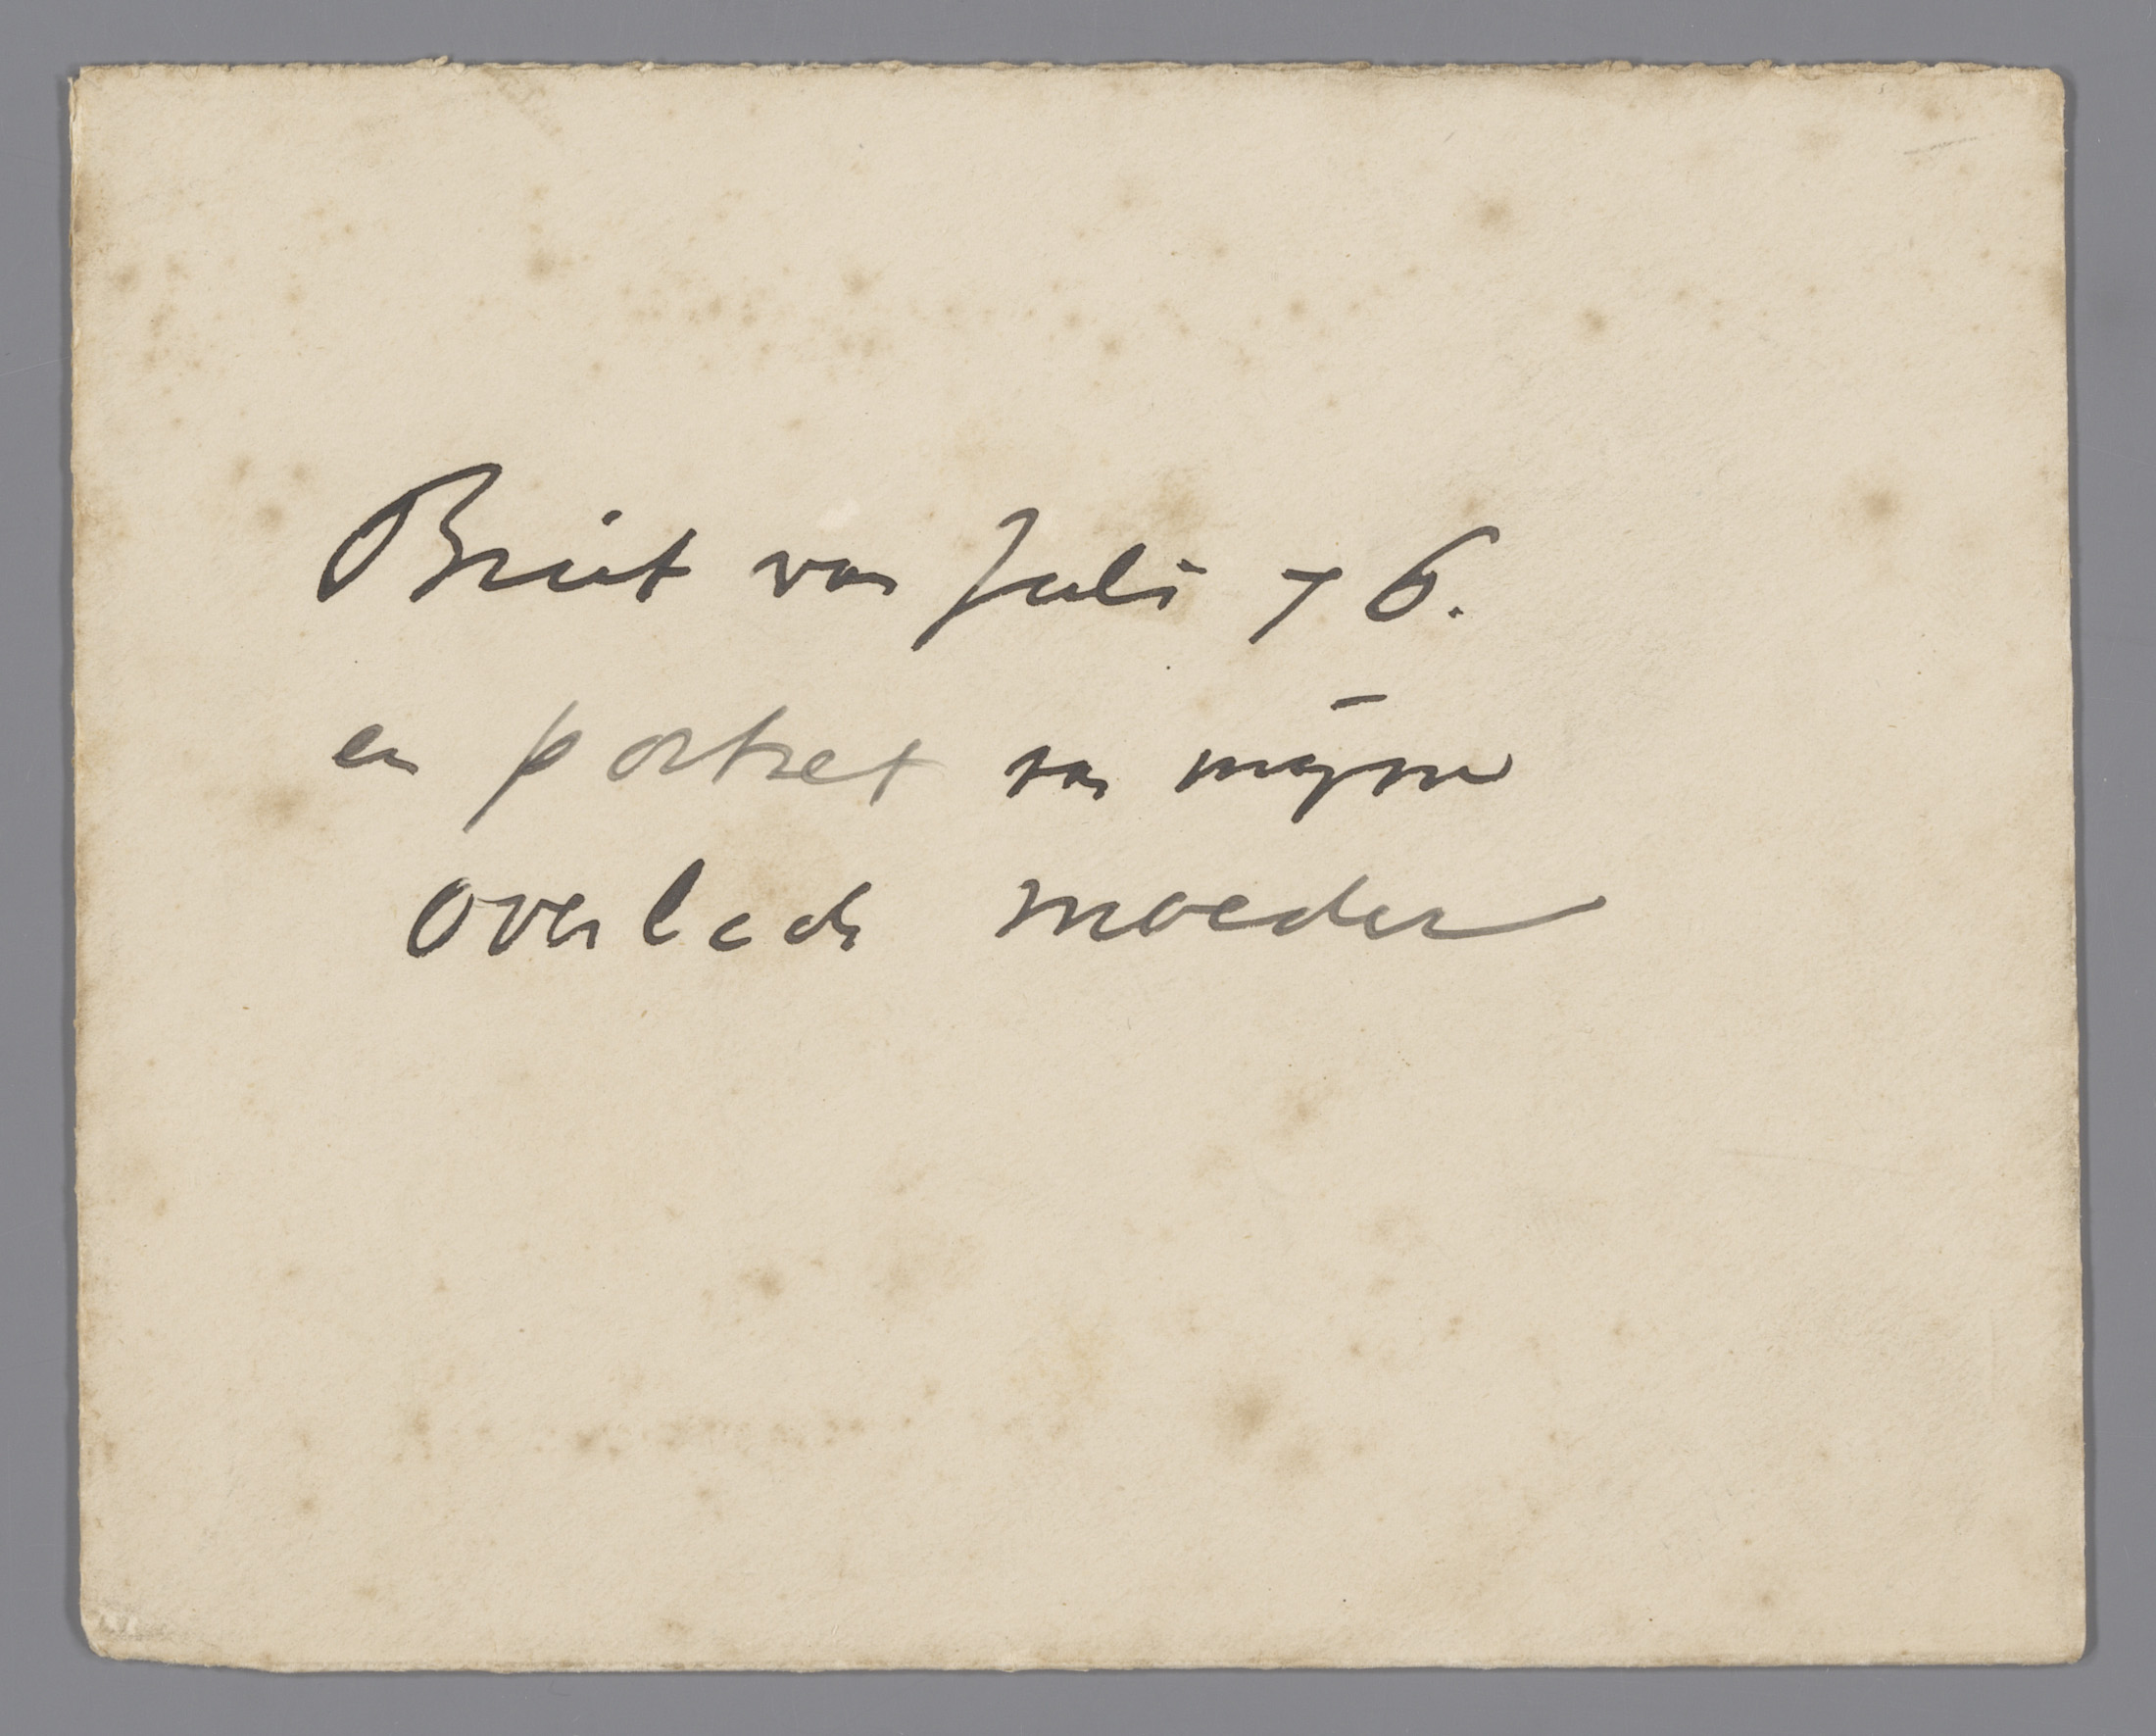 Brief van Juli 76.
en portret van mijne
overleden moeder